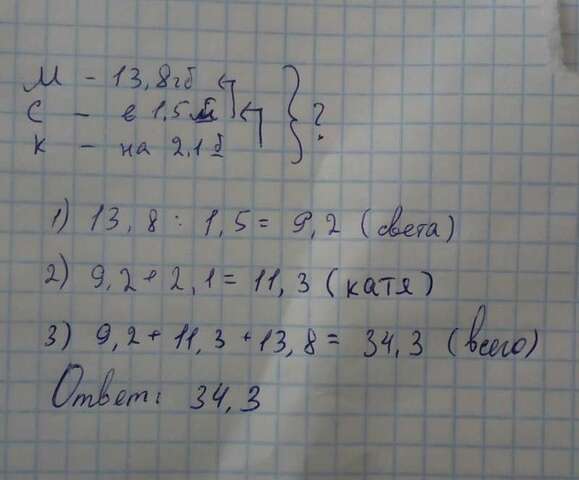 М - 13,8гб } ?
С - в 1,5 м
К - на 2,1 б
1) 13,8 : 1,5 = 9,2 (света)
2) 9,2 + 2,1 = 11,3 (катя)
3) 9,2 + 11,3 + 13,8 = 34,3 (всего)
Ответ: 34,3